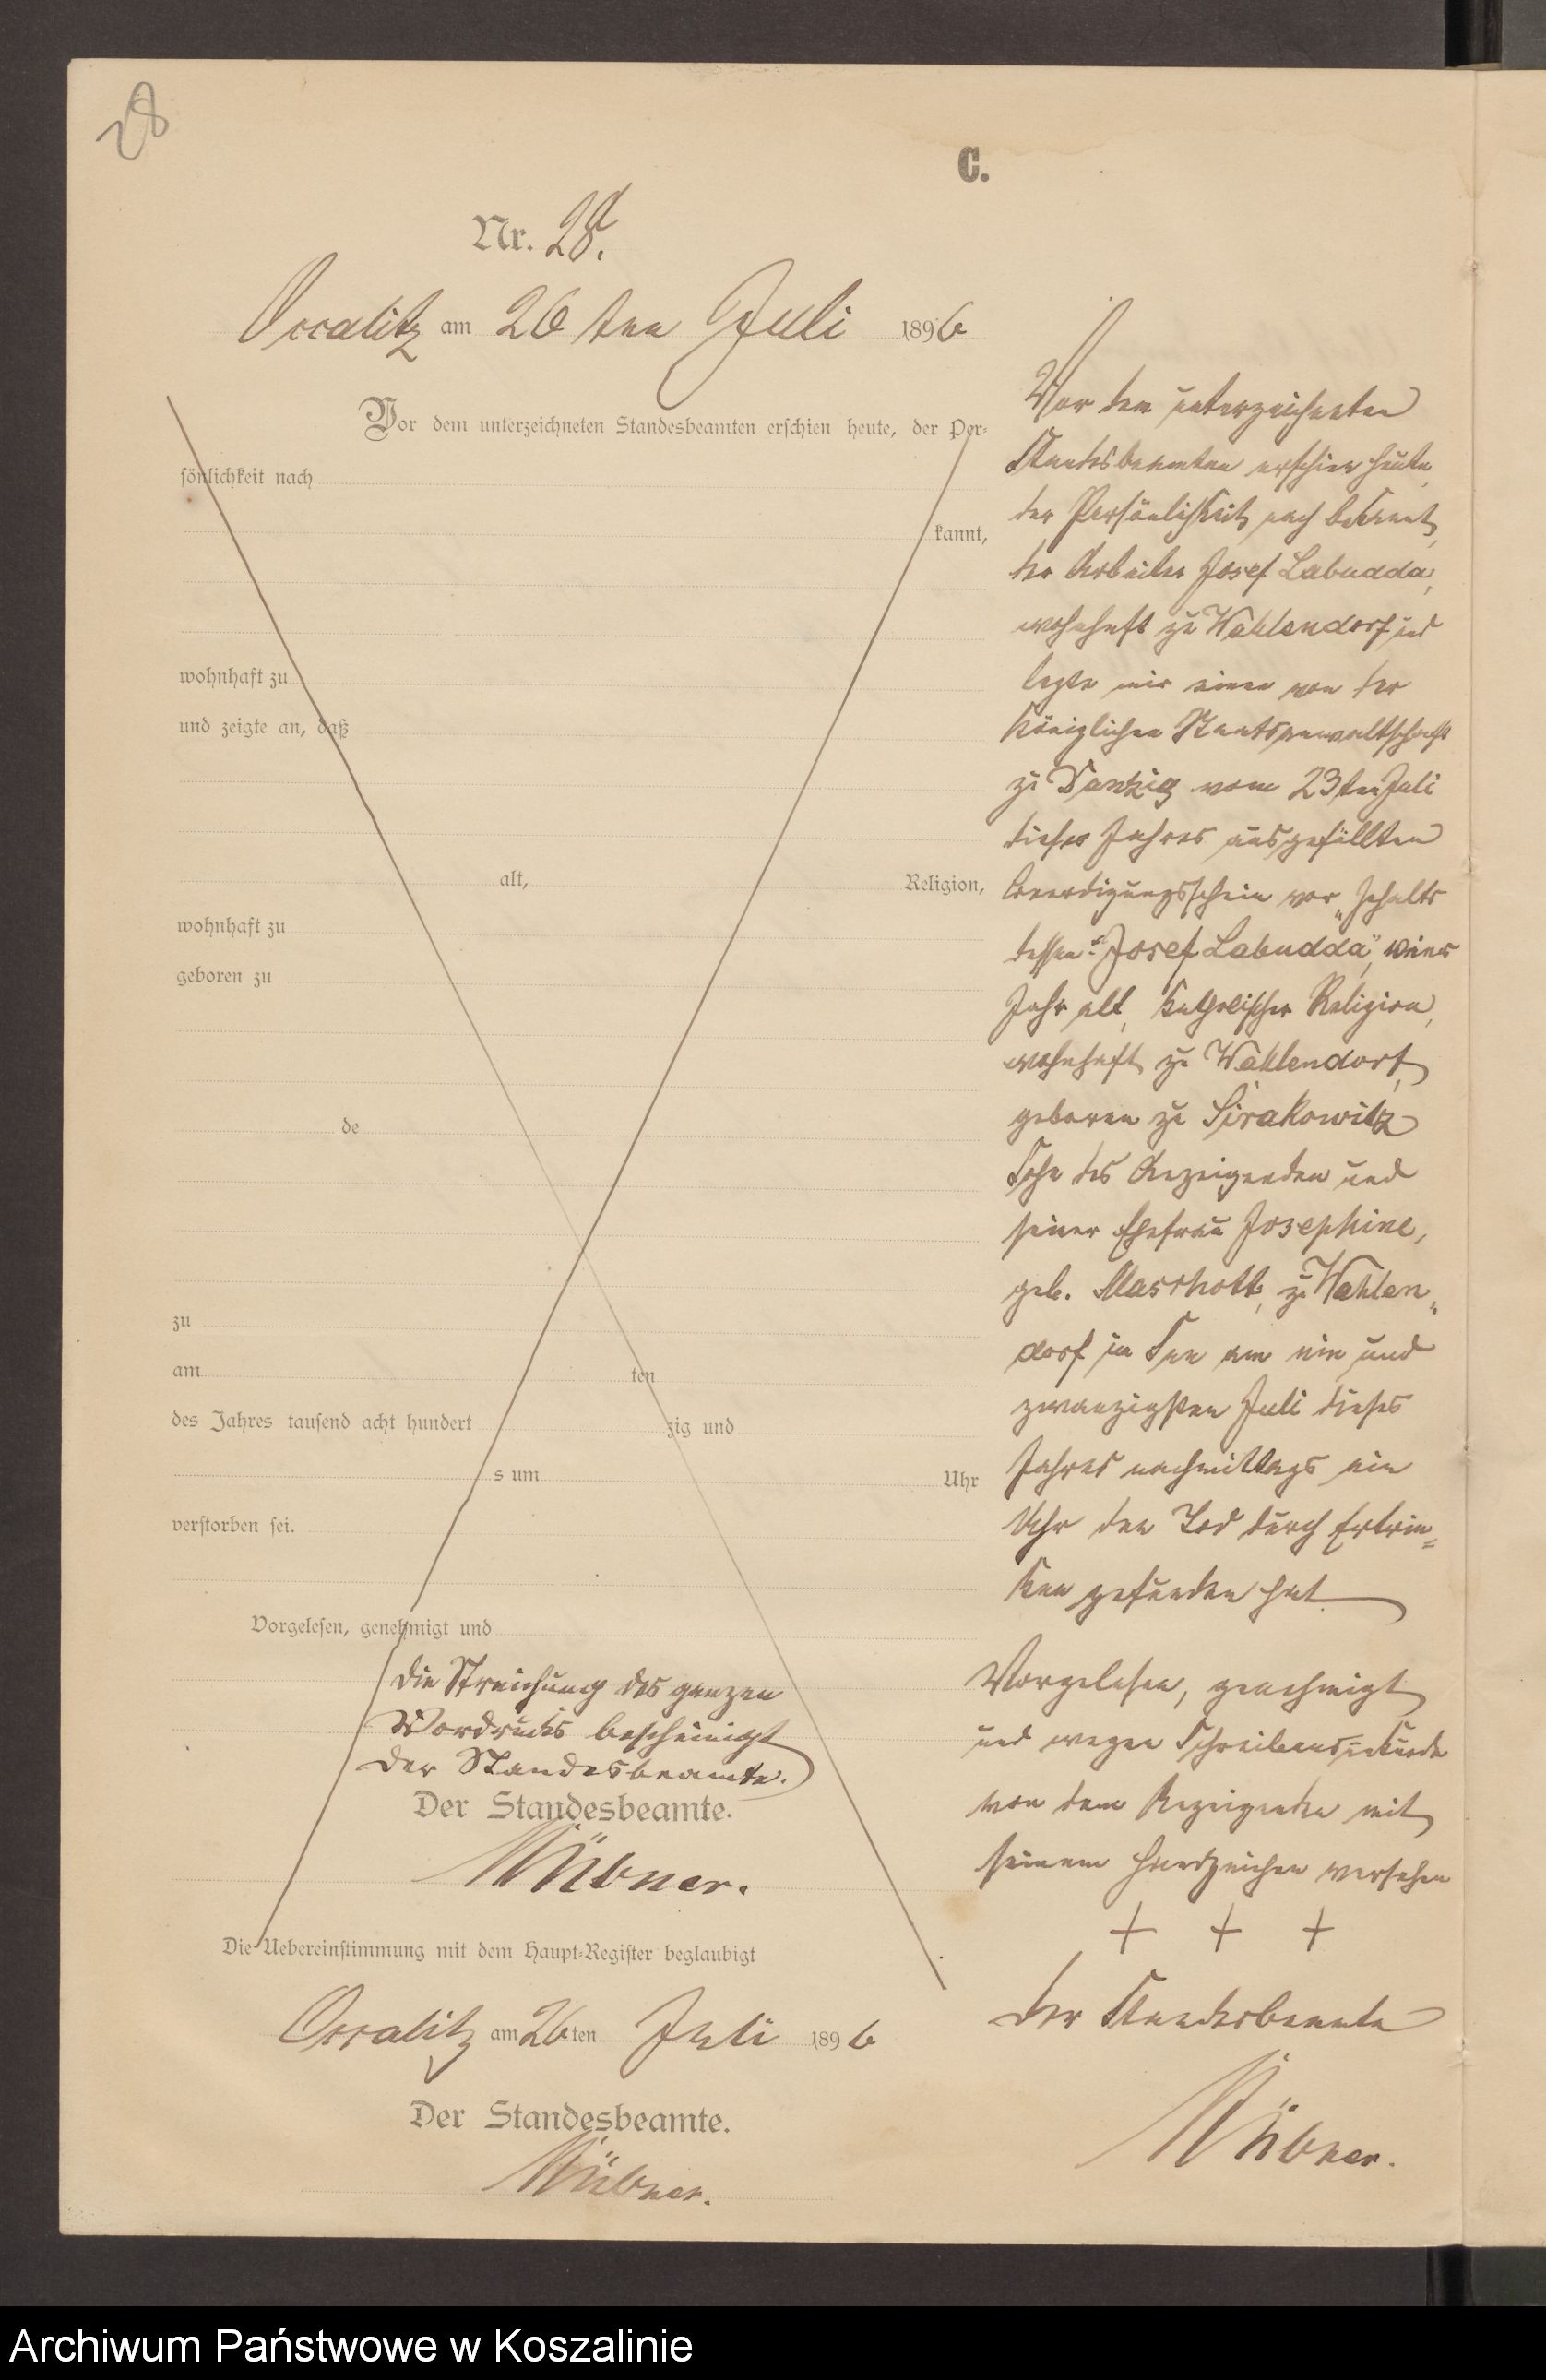 28
C.
Nr. 28.
Occalitz am 26ten Juli 1896
Vor dem unterzeichneten Standesbeamten erschien heute, der Per-
sönlichkeit nach
kannt,
wohnhaft zu
und zeigte an, daß
alt, Religion,
wohnhaft zu
geboren zu
de
zu
am ten
des Jahres tausend acht hundert zig und
s um Uhr
verstorben sei.
Vorgelesen, genehmigt und
Die Streichung des ganzen
Vordrucks bescheinigt
Der Standesbeamte.
Der Standesbeamte.
Hübner.
Die Uebereinstimmung mit dem Haupt-Register beglaubigt
Occalitz am 26ten Juli 1896
Der Standesbeamte.
Hübner.
Vor dem unterzeichneten
Standesbeamten erschien heute,
der Persönlichkeit nach bekannt,
der Arbeiter Josef Labudda,
wohnhaft zu Wahlendorf und
legte mir einen von der
Königlichen Staatsanwaltschaft
zu Danzig vom 23ten Juli
dieses Jahres ausgefüllten
Beerdigungsschein vor, Inhalts
dessen: "Josef Labudda",
Jahr alt, katholischer Religion,
wohnhaft zu Wahlendorf,
geboren zu Sirakowitz
Sohn des Anzeigenden und
seiner Ehefrau Josephine,
geb. zu Wahlen-
dorf im See am ein und
zwanzigsten Juli dieses
Jahres nachmittags ein
Uhr den Tod durch Ertrin-
ken gefunden hat
Vorgelesen, genehmigt
und wegen Schreibensunkunde
von dem Anzeigenden mit
seinem Handzeichen versehen
+ + +
Der Standesbeamte
Hübner.
Archiwum Państwowe w Koszalinie